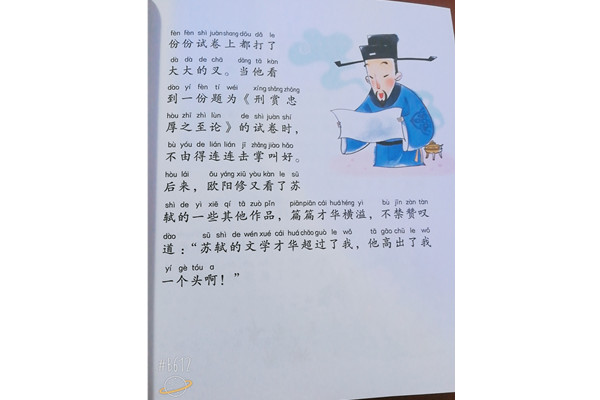 fèn fèn shì juàn shang dōu dǎ le
份份试卷上都打了
dà dà de chā dāng tā kàn
大大的叉。当他看
dào yí fèn tí wéi xíng shǎng zhōng
到一份题为《刑赏忠
hòu zhī zhì lùn de shì juàn shí
厚之至论》的试卷时，
bù yóu de lián lián jī zhǎng jiào hǎo
不由得连连击掌叫好。
hòu lái ōu yáng xiū yòu kàn le sū
后来，欧阳修又看了苏
shì de yì xiē qí tā zuò pǐn piān piān cái huá héng yì bù jīn zàn tàn
轼的一些其他作品，篇篇才华横溢，不禁赞叹
dào sū shì de wén xué cái huá chāo guò le wǒ tā gāo chū le wǒ
道：“苏轼的文学才华超过了我，他高出了我
yí gè tóu a
一个头啊！”